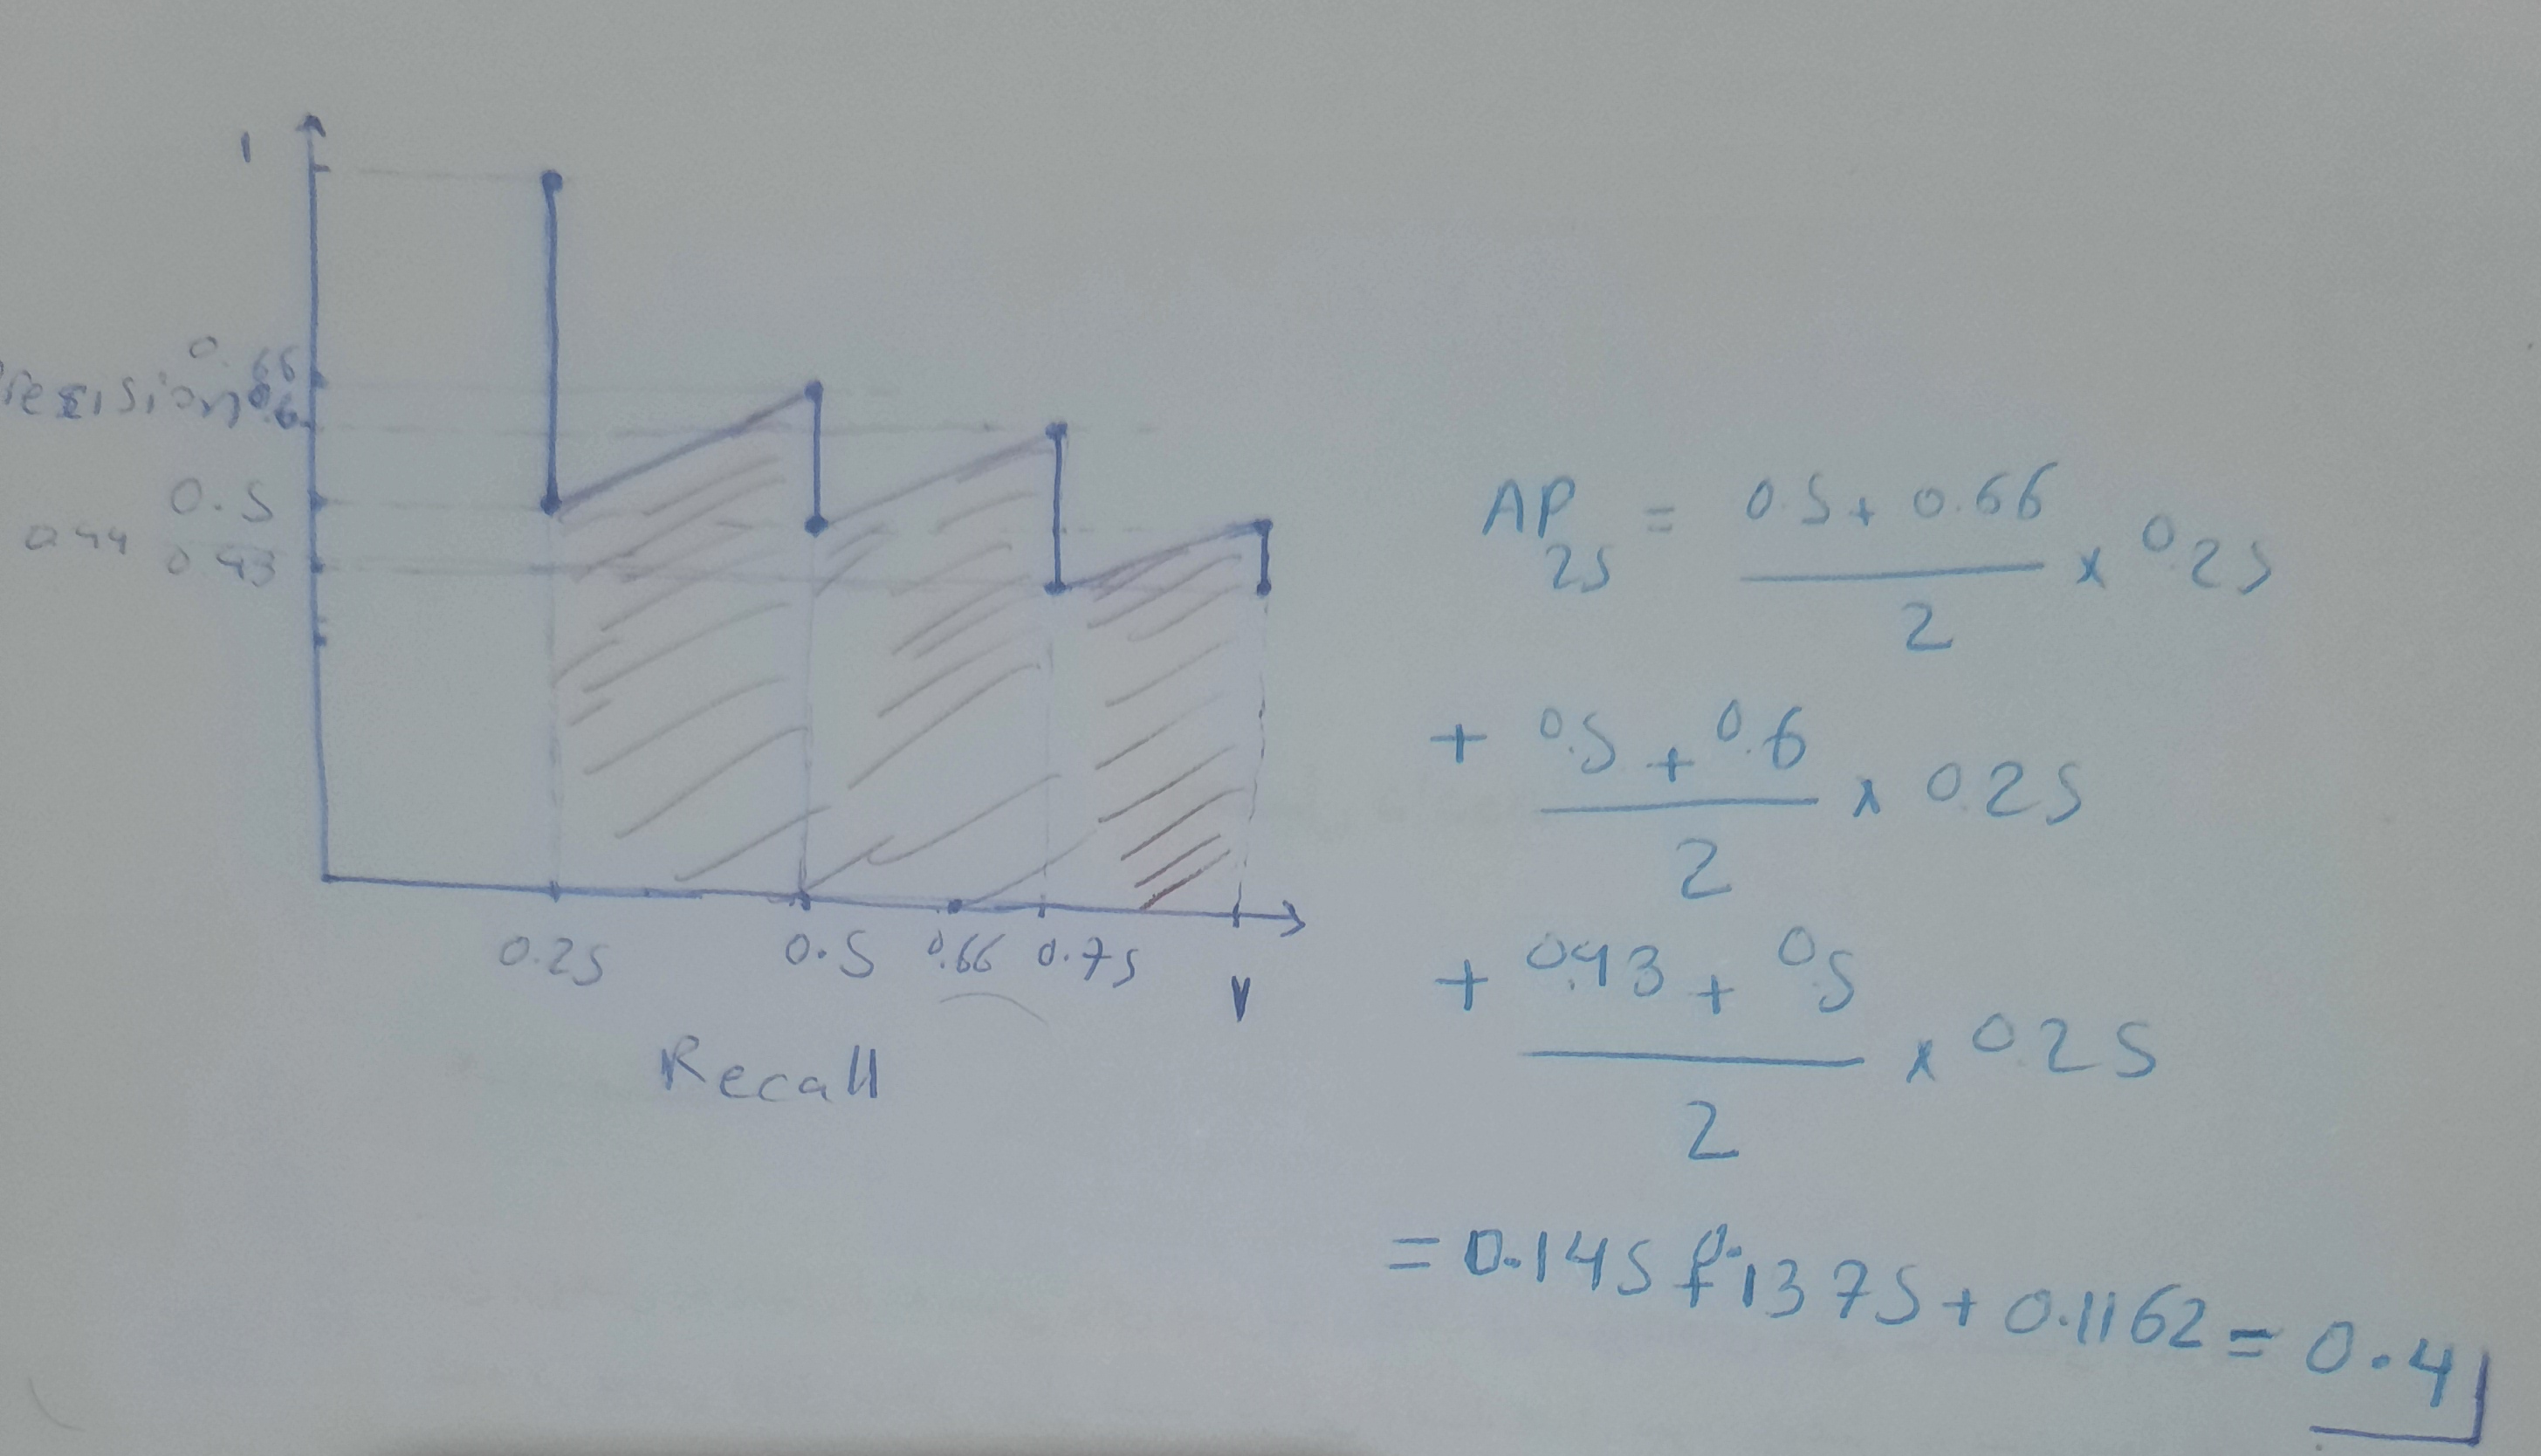 1
0.66
Precision 0.6
0.5
0.44 0.43
0.25 0.5 0.66 0.75 1
Recall
AP25 = 0.5 + 0.66 / 2 x 0.25
+ 0.5 + 0.6 / 2 x 0.25
+ 0.43 + 0.5 / 2 x 0.25
= 0.145 + 0.1375 + 0.1162 = 0.4